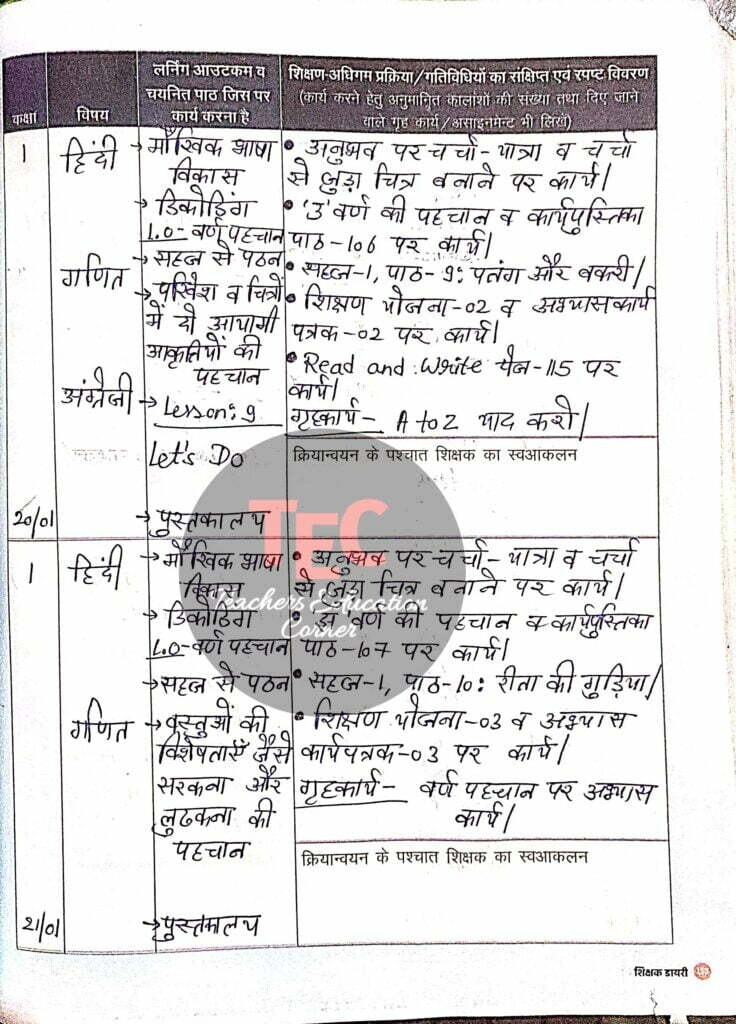 कक्षा
विषय
लर्निंग आउटकम व
चयनित पाठ जिस पर
कार्य करना है
शिक्षण-अधिगम प्रक्रिया/गतिविधियों का संक्षिप्त एवं स्पष्ट विवरण
(कार्य करने हेतु अनुमानित कालांशों की संख्या तथा दिए जाने
वाले गृह कार्य/असाइनमेंट भी लिखें)
1
हिंदी
→ मौखिक भाषा
विकास
→ डिकोडिंग
L.O- वर्ण पहचान
→ सहज से पठन
गणित
→ परिवेश व चित्रों
में दो आयामी
आकृतियों की
पहचान
अंग्रेजी
→ Lesson: 9
Let's Do
→ पुस्तकालय
20/01
• अनुभव पर चर्चा - यात्रा व चर्चा
से जुड़ा चित्र बनाने पर कार्य।
• 'उ' वर्ण की पहचान व कार्यपुस्तिका
पाठ-106 पर कार्य।
• सहज-1, पाठ-9: पतंग और बकरी।
• शिक्षण योजना-02 व अभ्यासकार्य
पत्रक-02 पर कार्य।
• Read and Write पेज-115 पर
कार्य।
गृहकार्य - A to Z याद करो।
क्रियान्वयन के पश्चात शिक्षक का स्वआकलन
TEC
Teachers Education
Corner
1
हिंदी
→ मौखिक भाषा
विकास
→ डिकोडिंग
L.O- वर्ण पहचान
→ सहज से पठन
गणित
→ वस्तुओं की
विशेषताएँ जैसे
सरकना और
लुढकना की
पहचान
→ पुस्तकालय
21/01
• अनुभव पर चर्चा - यात्रा व चर्चा
से जुड़ा चित्र बनाने पर कार्य।
वर्ण की पहचान व कार्यपुस्तिका
पाठ-107 पर कार्य।
• सहज-1, पाठ-10: रीता की गुड़िया।
• शिक्षण योजना-03 व अभ्यास
कार्यपत्रक-03 पर कार्य।
गृहकार्य - वर्ण पहचान पर अभ्यास
कार्य।
क्रियान्वयन के पश्चात शिक्षक का स्वआकलन
शिक्षक डायरी